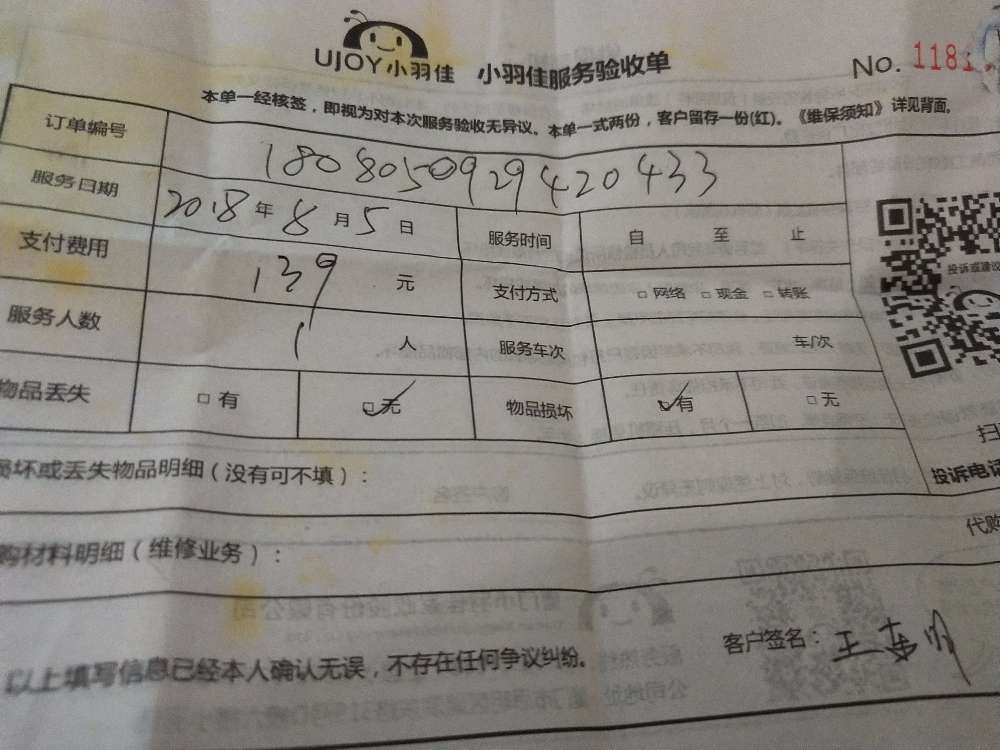 UJOY小羽佳 小羽佳服务验收单 No. 1181
本单一经核签，即视为对本次服务验收无异议。本单一式两份，客户留存一份(红)。《维保须知》详见背面。
订单编号 1808050929420433
服务日期 2018年8月5日 服务时间 自 至 止
支付费用 139 元 支付方式 □网络 □现金 □转账
投诉或建议
服务人数 1 人 服务车次 车/次
物品丢失 □有 ☑无 物品损坏 ☑有 □无
损坏或丢失物品明细（没有可不填）：
投诉电话
购材料明细（维修业务）： 代购
以上填写信息已经本人确认无误，不存在任何争议纠纷。 客户签名：